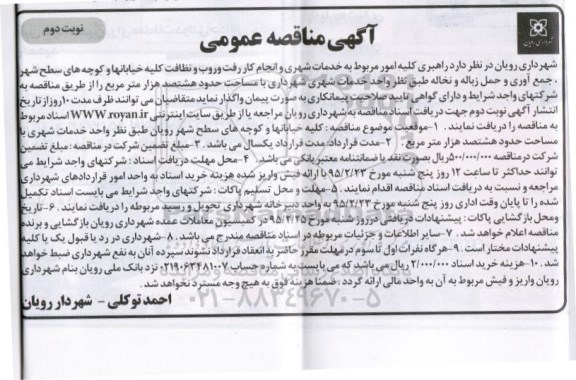 نوبت دوم
آگهی مناقصه عمومی
شهرداری رویان در نظر دارد راهبری کلیه امور مربوط به خدمات شهری و انجام کار رفت و روب و نظافت کلیه خیابانها و کوچه های سطح شهر
، جمع آوری و حمل زباله و نخاله طبق نظر واحد خدمات شهری شهرداری با مساحت حدود هشتصد هزار متر مربع را از طریق مناقصه به
شرکتهای واجد شرایط و دارای گواهی تایید صلاحیت پیمانکاری به صورت پیمان واگذار نماید متقاضیان می توانند ظرف مدت ۱۰ روز از تاریخ
انتشار آگهی نوبت دوم جهت دریافت اسناد مناقصه به شهرداری رویان مراجعه یا از طریق سایت اینترنتی WWW.royan.ir اسناد مربوط
به مناقصه را دریافت نمایند . ۱-موقعیت موضوع مناقصه : کلیه خیابانها و کوچه های سطح شهر رویان طبق نظر واحد خدمات شهری با
مساحت حدود هشتصد هزار متر مربع . ۲-مدت قرارداد: مدت قرارداد یکسال می باشد. ۳-مبلغ تضمین شرکت در مناقصه: مبلغ تضمین
شرکت در مناقصه ۵۰۰/۰۰۰/۰۰۰ریال بصورت نقد یا ضمانتنامه معتبر بانکی می باشد. ۴-محل مهلت دریافت اسناد : شرکتهای واجد شرایط می
توانند حداکثر تا ساعت ۱۲ روز پنج شنبه مورخ ۹۵/۲/۲۳ با ارائه فیش واریز شده هزینه خرید اسناد به واحد امور قراردادهای شهرداری
مراجعه و نسبت به دریافت اسناد مناقصه اقدام نمایند. ۵-مهلت و محل تسلیم پاکات : شرکتهای واجد شرایط می بایست اسناد تکمیل
شده را تا پایان وقت اداری روز پنج شنبه مورخ ۹۵/۲/۲۳ به واحد دبیرخانه شهرداری تحویل و رسید مربوطه را دریافت نمایند. ۶-تاریخ
ومحل بازگشایی پاکات : پیشنهادات دریافتی در روز شنبه مورخ ۹۵/۲/۲۵ در کمیسیون معاملات عمده شهرداری رویان بازگشایی و برنده
مناقصه اعلام خواهد شد. ۷-سایر اطلاعات و جزئیات مربوطه در اسناد مناقصه مندرج می باشد. ۸-شهرداری در رد یا قبول یک یا کلیه
پیشنهادات مختار است. ۹-هر گاه نفرات اول تا سوم در مهلت مقرر حاضر به انعقاد قرارداد نشوند سپرده آنان به نفع شهرداری ضبط خواهد
شد. ۱۰-هزینه خرید اسناد ۲/۰۰۰/۰۰۰ ریال می باشد که می بایست به شماره حساب نزد بانک ملی رویان بنام شهرداری
رویان واریز و فیش مربوط به آن به واحد مالی ارائه گردد . ضمنا هزینه فوق به هیچ وجه مسترد نخواهد شد.
احمد توکلی - شهردار رویان
۰۲۱-۸۸۳۴۹۶۷۰-۵